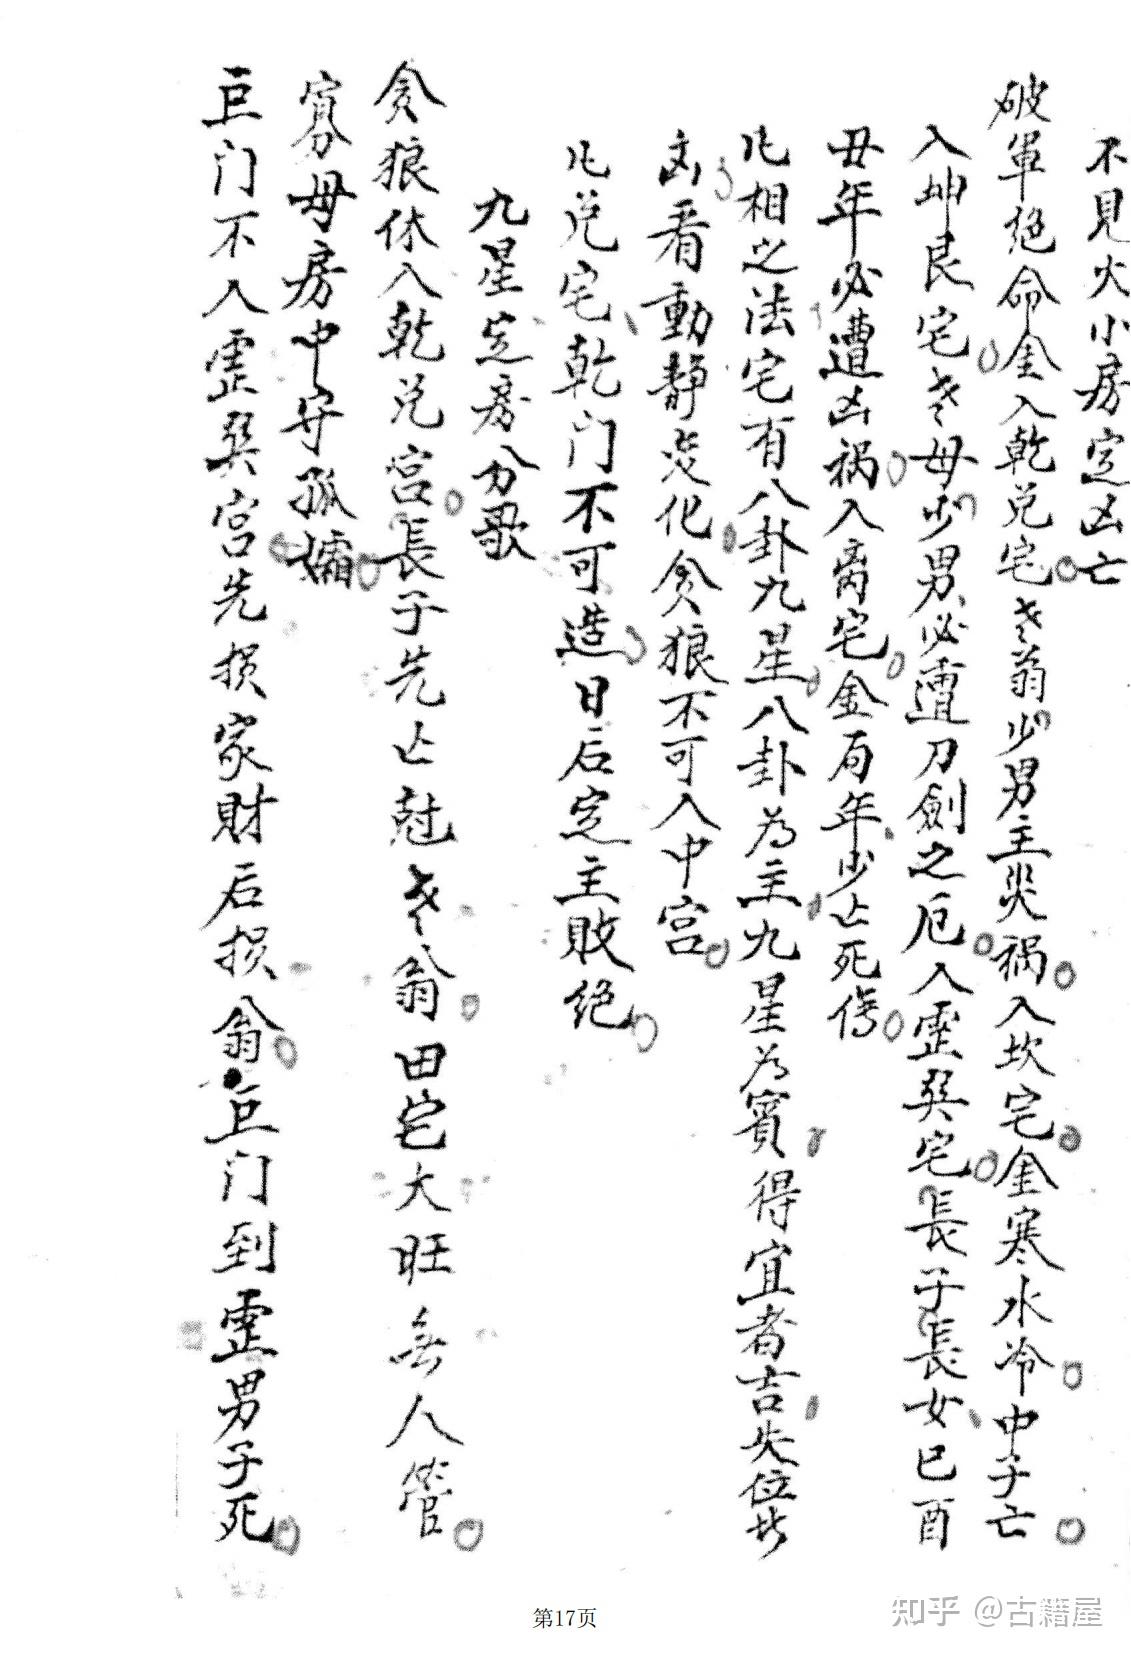 不見火小房定凶亡
破軍绝命金入乾兑宅老翁少男主災祸入坎宅金寒水冷中子亡
入坤艮宅老母少男必遭刀劍之厄入震巽宅長子長女巳酉
丑年必遭凶祸入离宅金局年少亡死傷
凡相之法宅有八卦九星八卦为主九星为賓得宜者吉失位者
凶看動静变化贪狼不可入中宫
凡兑宅乾门不可造日后定主敗绝
九星定房分歌
贪狼休入乾兑宫長子先亡尅老翁田宅大旺無人管
寡母房中守孤孀
巨门不入震巽宫先损家財后损翁巨门到震男子死
第17页
知乎 @古籍屋